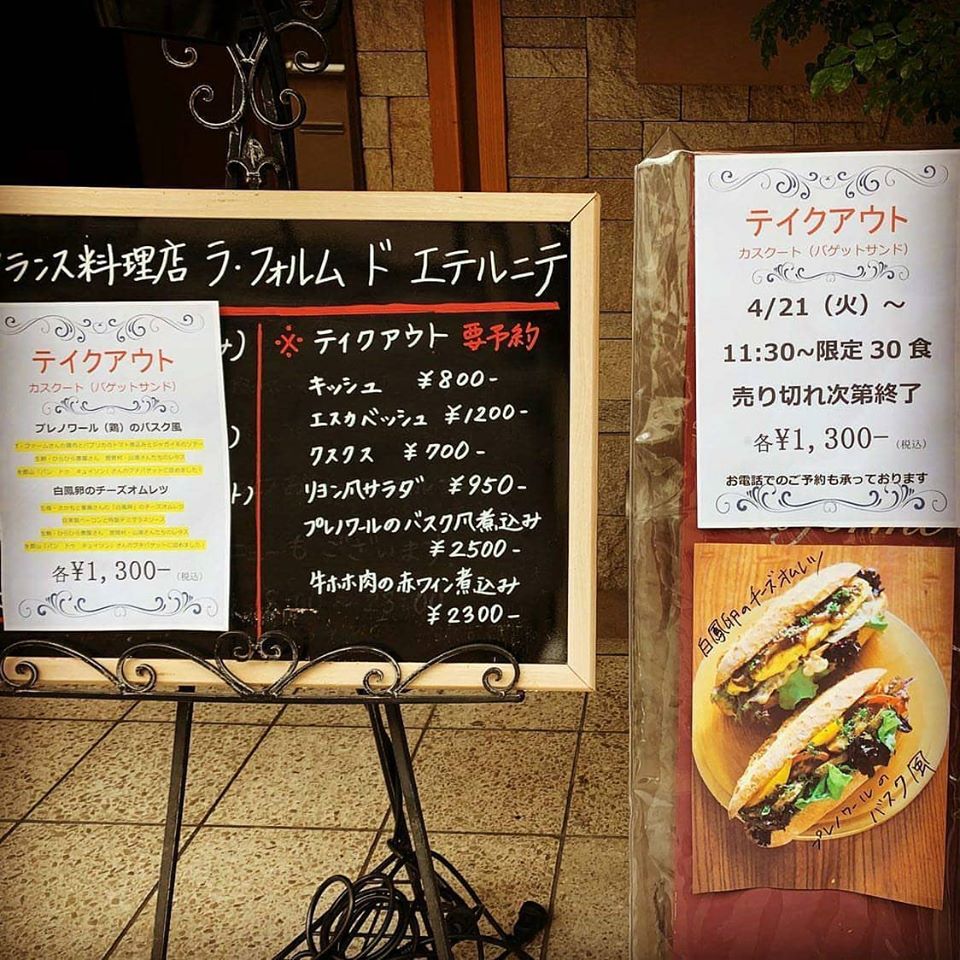 ランス料理店 ラ・フォルム ド エテルニテ
テイクアウト
カスクート（バゲットサンド）
プレノワール（鶏）のバスク風
白鳳卵のチーズオムレツ
各¥1,300−（税込）
※ テイクアウト 要予約
キッシュ ¥800-
エスカベッシュ ¥1200-
クスクス ¥700-
リヨン風サラダ ¥950-
プレノワールのバスク風煮込み
¥2500-
牛ホホ肉の赤ワイン煮込み
¥2300-
テイクアウト
カスクート（バゲットサンド）
4/21（火）～
11:30~限定30食
売り切れ次第終了
各¥1,300−（税込）
お電話でのご予約も承っております
白鳳卵のチーズオムレツ
プレノワールの
バスク風